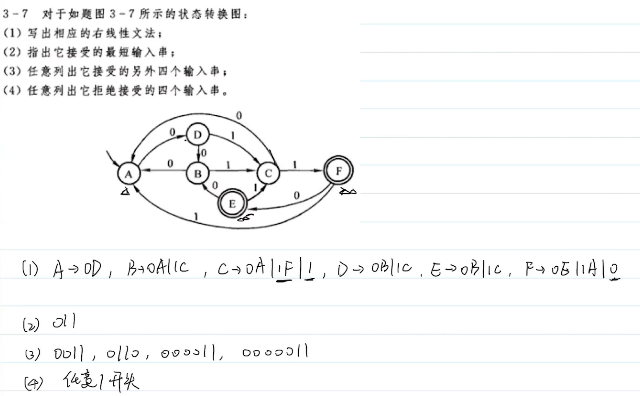 3-7 对于如题图 3-7 所示的状态转换图：
(1) 写出相应的右线性文法；
(2) 指出它接受的最短输入串；
(3) 任意列出它接受的另外四个输入串；
(4) 任意列出它拒绝接受的四个输入串。
0
D
0 1
0
A 0 B 1 C 1 F
0 1
E 0
1
(1) A→0D, B→0A|1C, C→0A|1F|1, D→0B|1C, E→0B|1C, F→0E|1A|0
(2) 011
(3) 0011, 0110, 000011, 0000011
(4) 任意1开头